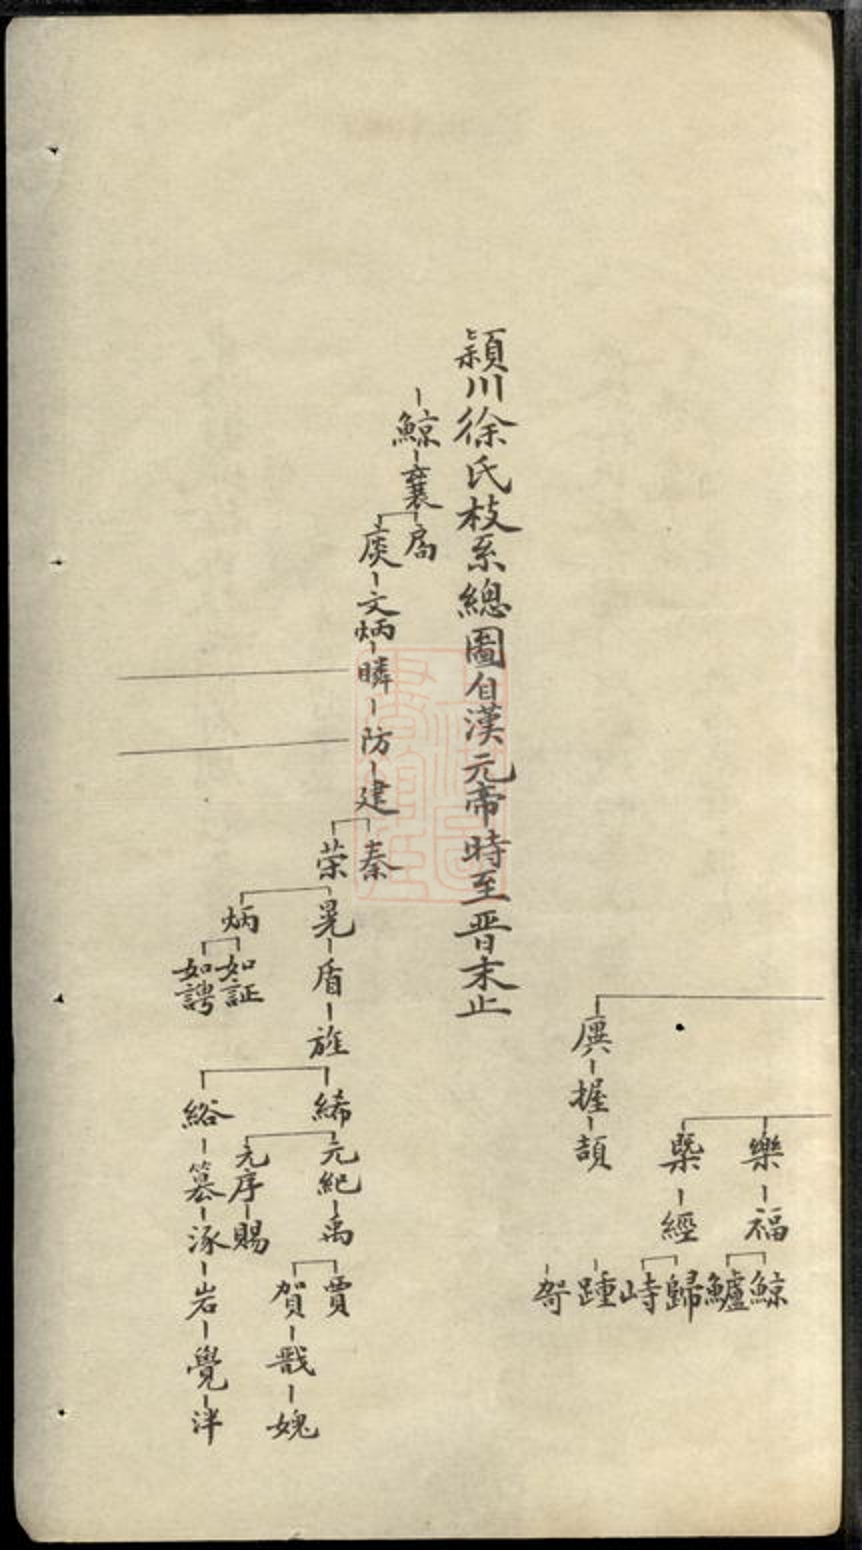 樂
福
鯨
鱸
㮣
經
歸
峙
踵
握
頡
穎川徐氏枝系總圖自漢元帝時至晋末止
鯨
襄
文炳
瞵
防
建
秦
荣
晃
盾
旌
炳
如証
如聘
絺
元紀
禹
賈
賀
戬
媿
元序
賜
綌
篡
涿
岩
覺
泮